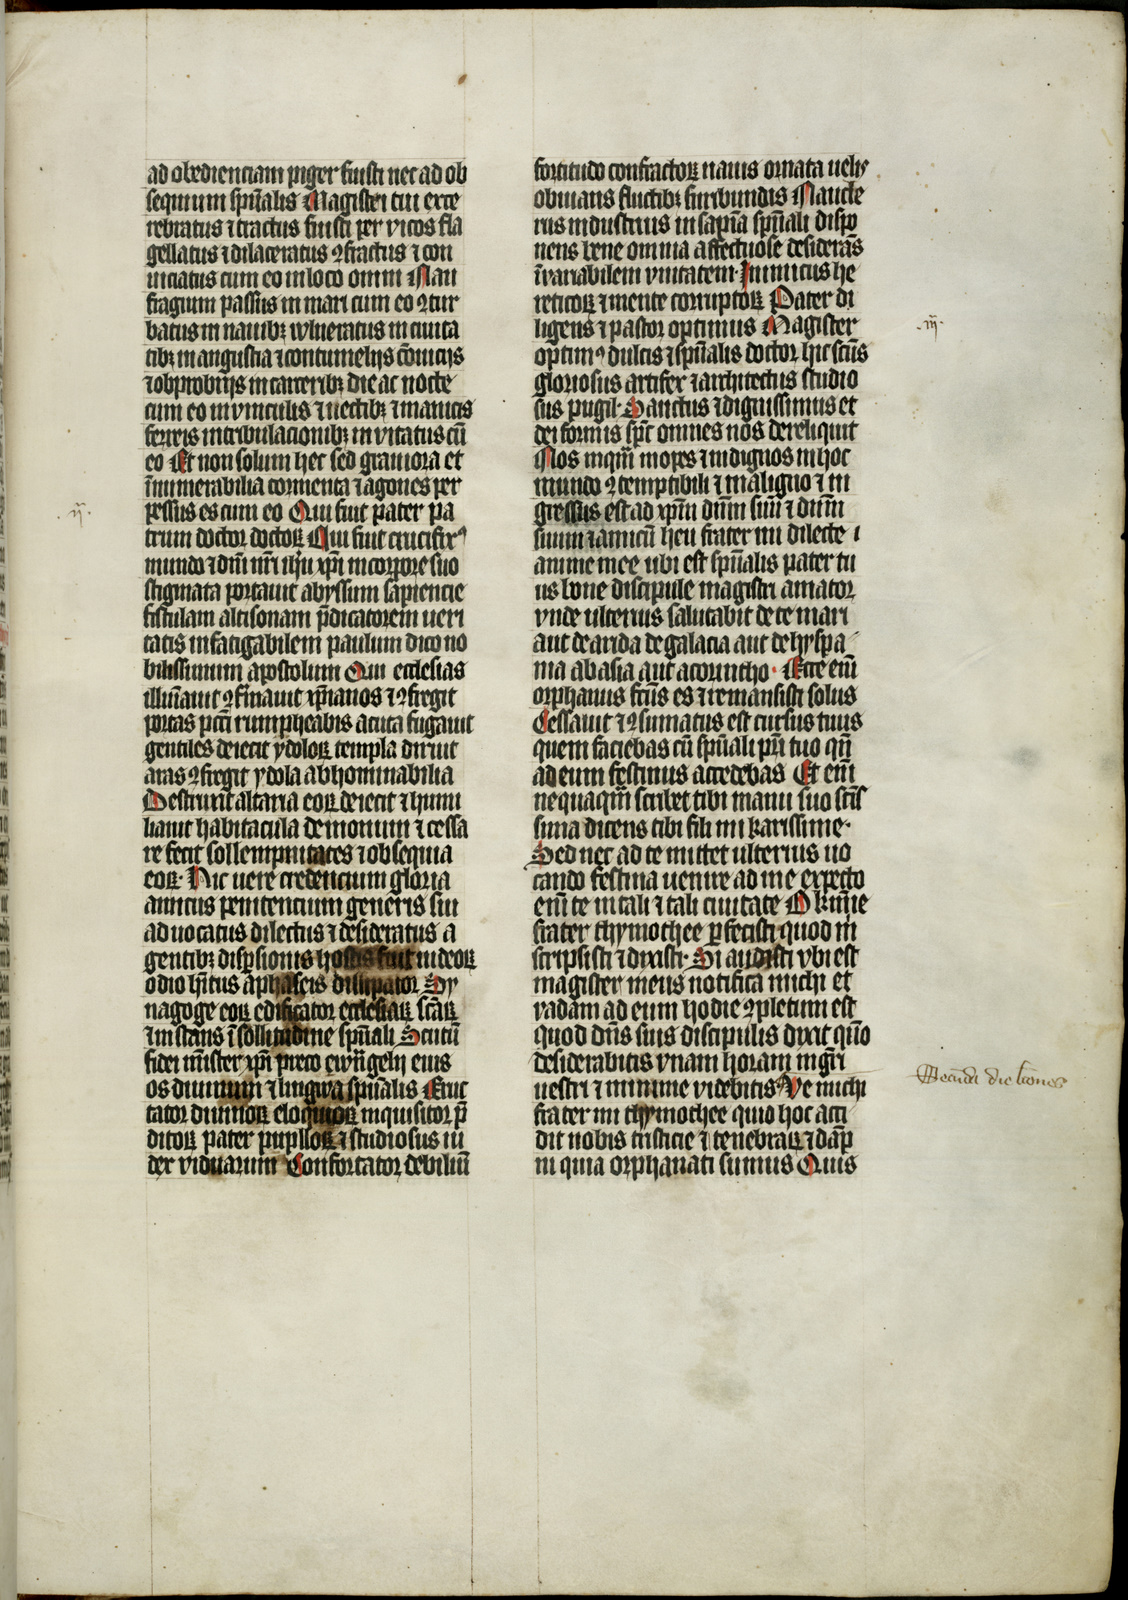 ad obedienciam piger fuisti nec ad ob
sequium sp̄ualis Magistri tui exce
rebratus ⁊ tractus fuisti per vicos fla
gellatus ⁊ dilaceratus ꝯfractus ⁊ con
uiciatus cum eo in loco omni Nau
fragium passus in mari cum eo ꝯtur
batus in nauibꝫ wlneratus in ciuita
tibꝫ in angustia ⁊ contumelijs c̄oniciis
⁊ obprobriis in carceribꝫ die ac nocte
cum eo in vinculis ⁊ vectibꝫ ⁊ manicis
ferreis in tribulacionibꝫ inuitatus cū
eo Et non solum hec sed grauiora et
īnumerabilia tormenta ⁊ agones per
.ij. pessus es cum eo Qui fuit pater pa
trum doctor doctoꝝ Qui fuit crucifixꝰ
mundo ⁊ dn̄i nr̄i ihū xp̄i in corpore suo
stigmata portauit abyssum sapiencie
fistulam altisonam p̄dicatorem ueri
tatis infatigabilem paulum dico no
bilissimum apostolum Qui ecclesias
illuīauit ꝯfirmauit xp̄ianos ⁊ ꝯfregit
portas pctī rumpheabis acuta fugauit
gentiles deiecit ydoloꝝ templa diruit
aras ꝯfregit ydola abhominabilia
Destruxit altaria eoꝝ deiecit ⁊ humi
liauit habitacula demonum ⁊ cessa
re fecit sollempnitates ⁊ obsequia
eoꝝ. Hic uere credencium gloria
amicus penitencium generis sui
aduocatus dilectus ⁊ desideratus a
gentibꝫ disꝑsionis hostis fuit iudeoꝝ
odio hītus a phaseis dissipator Sy
nagoge eoꝝ edificator ecclesiaꝝ scāꝝ
⁊ instans ī sollitudine sp̄uali Scutū
fidei mīster xp̄i preco ewn̄gelii eius
os diuinum ⁊ lingwa sp̄ualis Eruc
tator diuinoꝝ eloquioꝝ inquisitor ꝑ
ditoꝝ pater pupilloꝝ ⁊ studiosus iu
dex viduarum Confortator debiliū
fortitudo confractoꝝ nauis ornata uelis
obuians fluctibꝫ furibundis Naucle
rus industrius in sapīa sp̄uali dispo
nens bene omnia affectuose desiderās
īuariabilem vnitatem. Inimicus he
reticoꝝ ⁊ mente corruptoꝝ Pater di
.iij. ligens ⁊ pastor optimus Magister
optimꝰ dulcis ⁊ sp̄ualis doctor hic scūs
gloriosus artifex ⁊ architectus studio
sus pugil. Sanctus ⁊ dignissimus et
dei formis sp̄c omnes nos dereliquit
Nos inqm̄ inopes ⁊ indignos in hoc
mundo ꝯtemptibili ⁊ maligno ⁊ in
gressus est ad xp̄m dn̄m suū ⁊ dm̄
suum ⁊ amicū heu frater mi dilecte ⁊
anime mee ubi est sp̄ualis pater tu
us bone discipule magistri amator
vnde ulterius salutabit de te mari
aut de arida de galacia aut de hyspa
nia ab asia aut a corintho. Ecce em̄
orphanus fcūs es ⁊ remansisti solus
Cessauit ⁊ ꝯsumatus est cursus tuus
quem faciebas cū sp̄uali pr̄i tuo qn̄
ad eum festinus accedebas Et em̄
nequaqm̄ scribet tibi manu suo sctīs
sima dicens tibi fili mi karissime.
Sed nec ad te mittet ulterius uo
cando festina uenire ad me expecto
em̄ te in tali ⁊ tali ciuitate O kme
frater thymothee ꝑfecisti quod in
scripsisti ⁊ dixisti. Si audisti vbi est
magister meus notifica michi et
vadam ad eum hodie ꝯpletum est
quod dn̄s suis discipulis dixit qn̄o
desiderabitis vnam horam mgr̄i
Secundi die lc̄ones
uestri ⁊ minime videbitis Ve michi
frater mi thymothee quo hoc acci
dit nobis tristicie ⁊ tenebraꝝ ⁊ dāp
ni quia orphanati sumus Quis